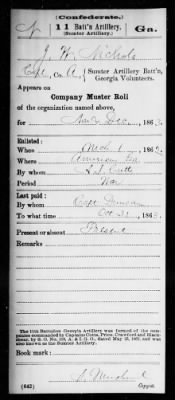 (Confederate.)
N 11 Batt'n Artillery, Ga.
(Sumter Artillery.)
J. W. Nichols
Corpl, Co. A, Sumter Artillery Batt'n,
Georgia Volunteers.
Appears on
Company Muster Roll
of the organization named above,
for Nov & Dec, 1863.
Enlisted:
When Mch 1, 186
Where Americus Ga
By whom Cutts
Period War
Last paid:
By whom Capt Duncan
To what time Oct 31, 1863.
Present or absent Present
Remarks:
The 11th Battalion Georgia Artillery was formed of the com-
panies commanded by Captains Cutts, Price, Crawford and Black-
shear, by S. O. No. 120, A. & I. G. O., dated May 22, 1862, and
Book mark:
(642) Copyist.